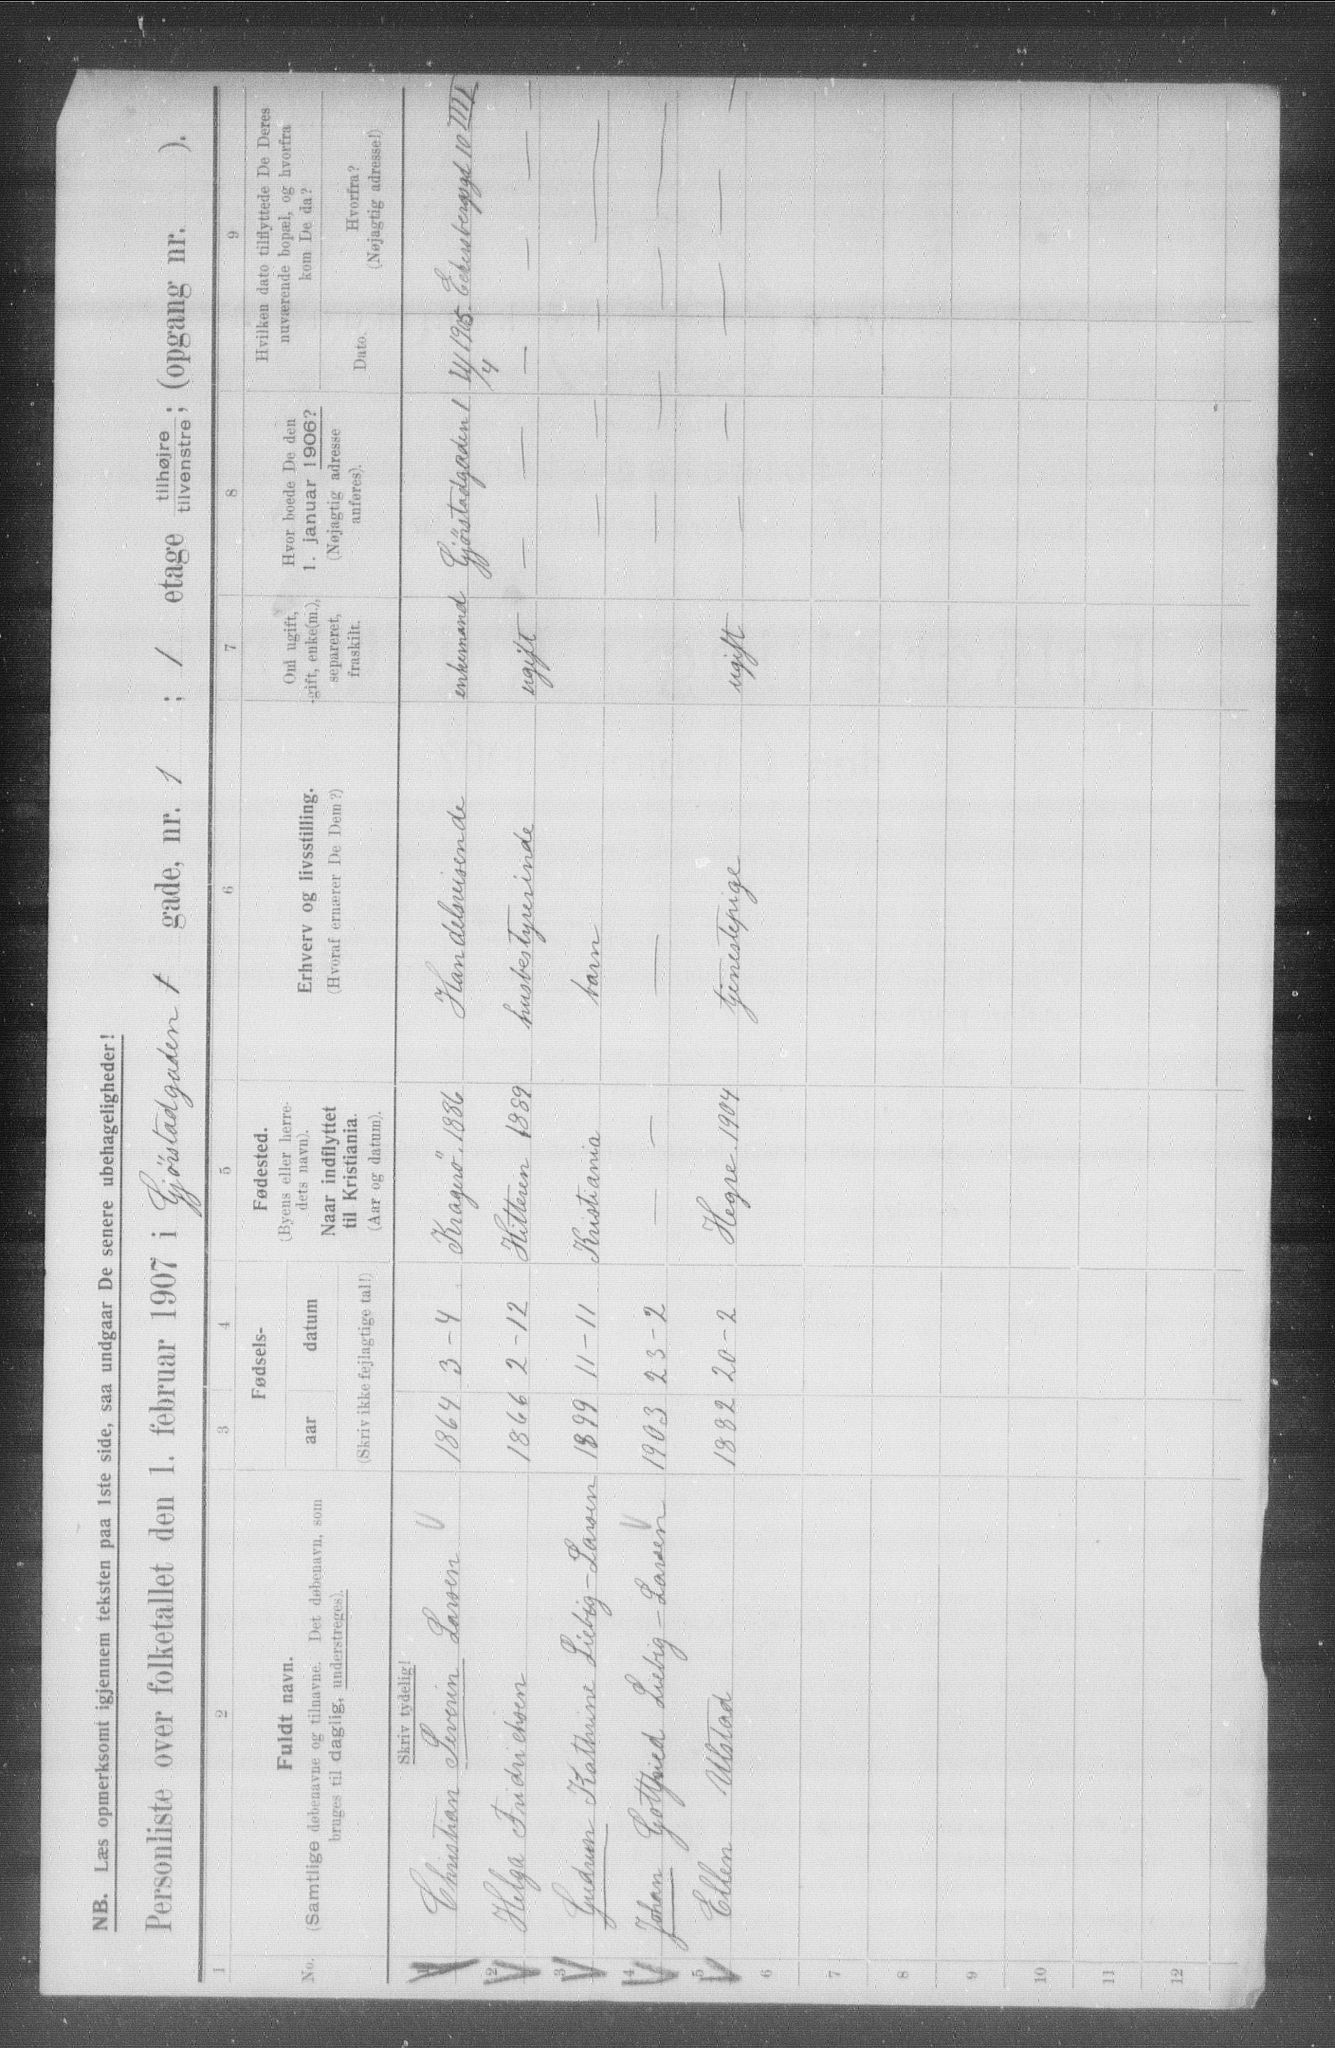 NB. Læs opmerksomt igjennem teksten paa 1ste side, saa undgaar De senere ubehageligheder!
Personliste over folketallet den 1. februar 1907 i Gjørstadgaden 1 gade, nr. 1 ; 1 etage tilhøjre tilvenstre; (opgang nr. ).
1 2 3 4 5 6 7 8 9
No.
Fuldt navn.
(Samtlige døbenavne og tilnavne. Det døbenavn, som
bruges til daglig, understreges).
Fødsels-
aar datum
(Skriv ikke fejlagtige tal!)
Fødested.
(Byens eller herre-
dets navn).
Naar indflyttet
til Kristiania.
(Aar og datum).
Erhverv og livsstilling.
(Hvoraf ernærer De Dem?)
Om ugift,
gift, enke(m.),
separeret,
fraskilt.
Hvor boede De den
1. januar 1906?
(Nøjagtig adresse
anføres).
Hvilken dato tilflyttede De Deres
nuværende bopæl, og hvorfra
kom De da?
Dato.
Hvorfra?
(Nøjagtig adresse!)
Skriv tydelig!
1 Christian Severin Larsen V 1864 3-4 Kragerö, 1886 Handelsreisende enkemand Gjørstadgaden 1 14/4 1905 10 IIII
2 Helga Fridrichsen 1866 2-12 Hitteren 1889 husbestyrerinde ugift — — — — — —
3 Gudrun Kathrine Liebig-Larsen 1899 11-11 Kristiania barn — — — —
4 Johan Gottfried Liebig-Larsen V 1903 23-2 — — — — — — — —
5 Ellen Ulstad 1882 20-2 Hegre 1904 tjenestepige ugift — — — — —
6
7
8
9
10
11
12